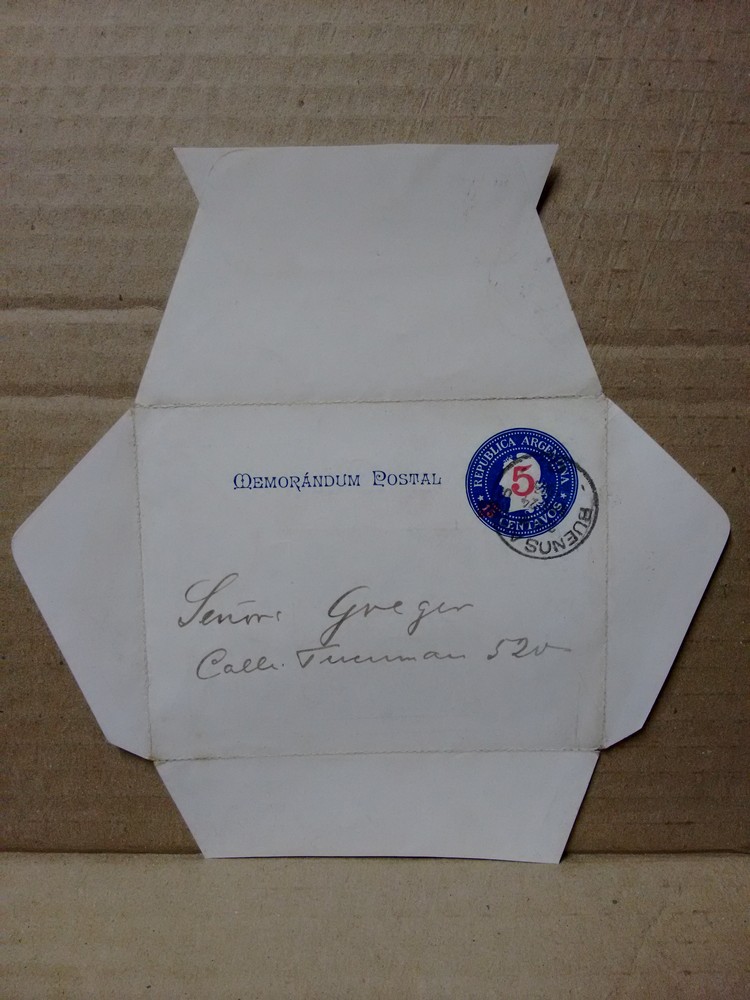 MEMORÁNDUM POSTAL
REPUBLICA ARGENTINA
5
CENTAVOS
BUENOS
Señor Greger
Calle Tucuman 520